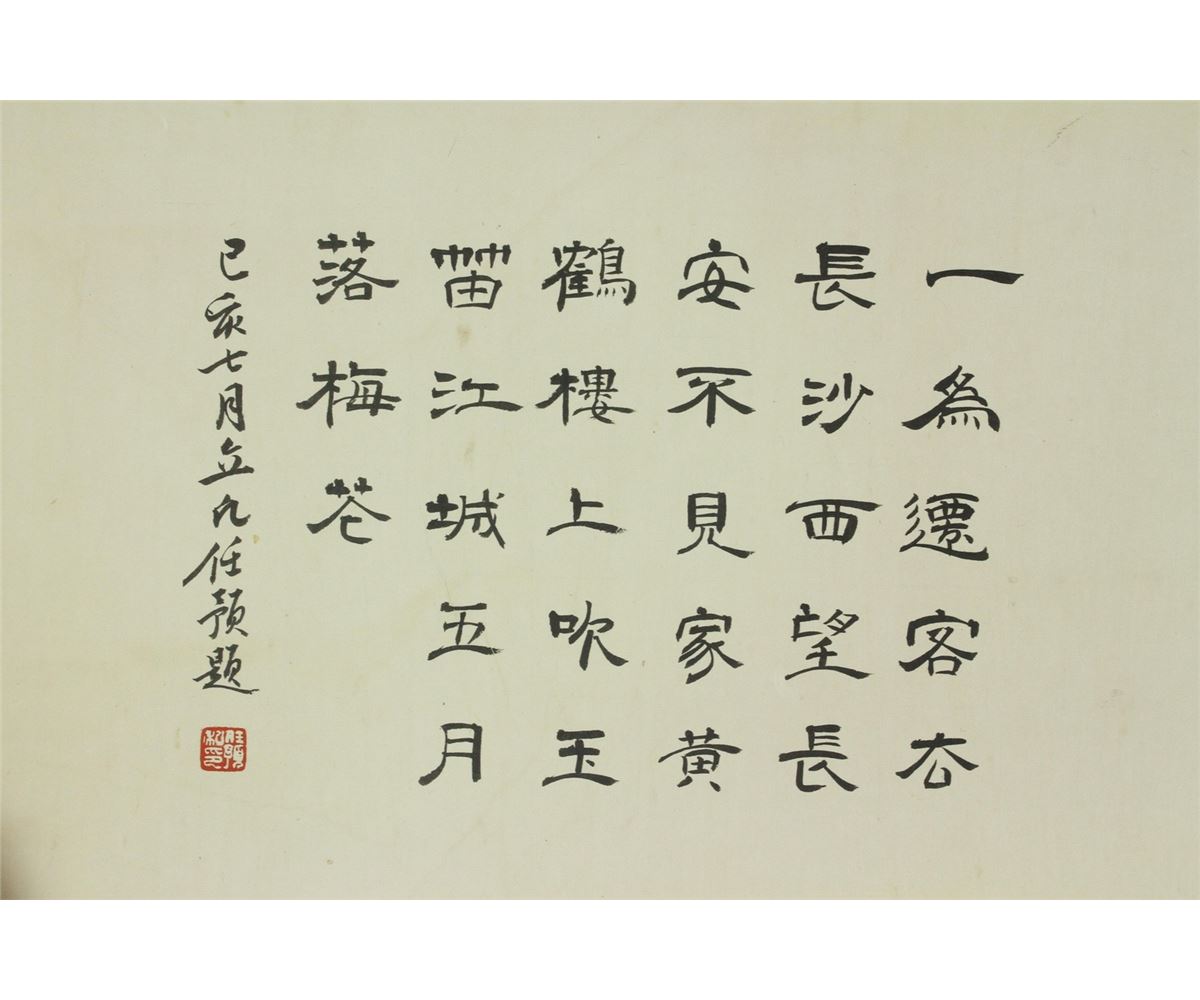 一為遷客去
長沙西望長
安不見家黃
鶴樓上吹玉
笛江城五月
落梅花
己亥七月立凡任預題
任預私印